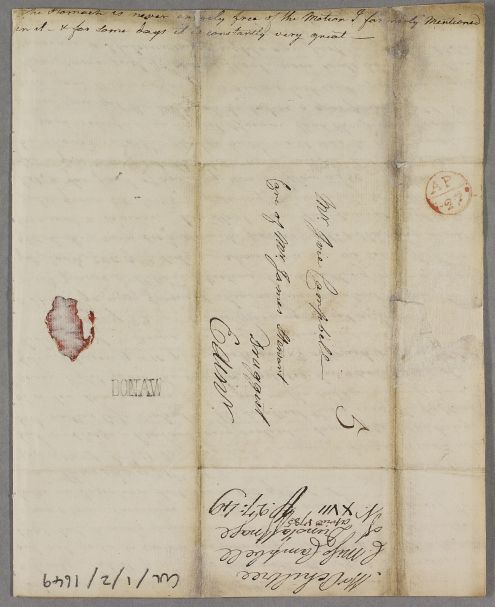 The Stomach is never entirely free of the Motion I formerly Mentioned
in it - & for some days it is constantly very great —
AP
27
Mr. Jno: Campbell
Care of Mr. James Stewart
Druggist
Edinr.
5
BONAW
Mr Achiltree
Campbell
of Dundaffnage
April 1785
N. XVII
CUL/1/2/1649